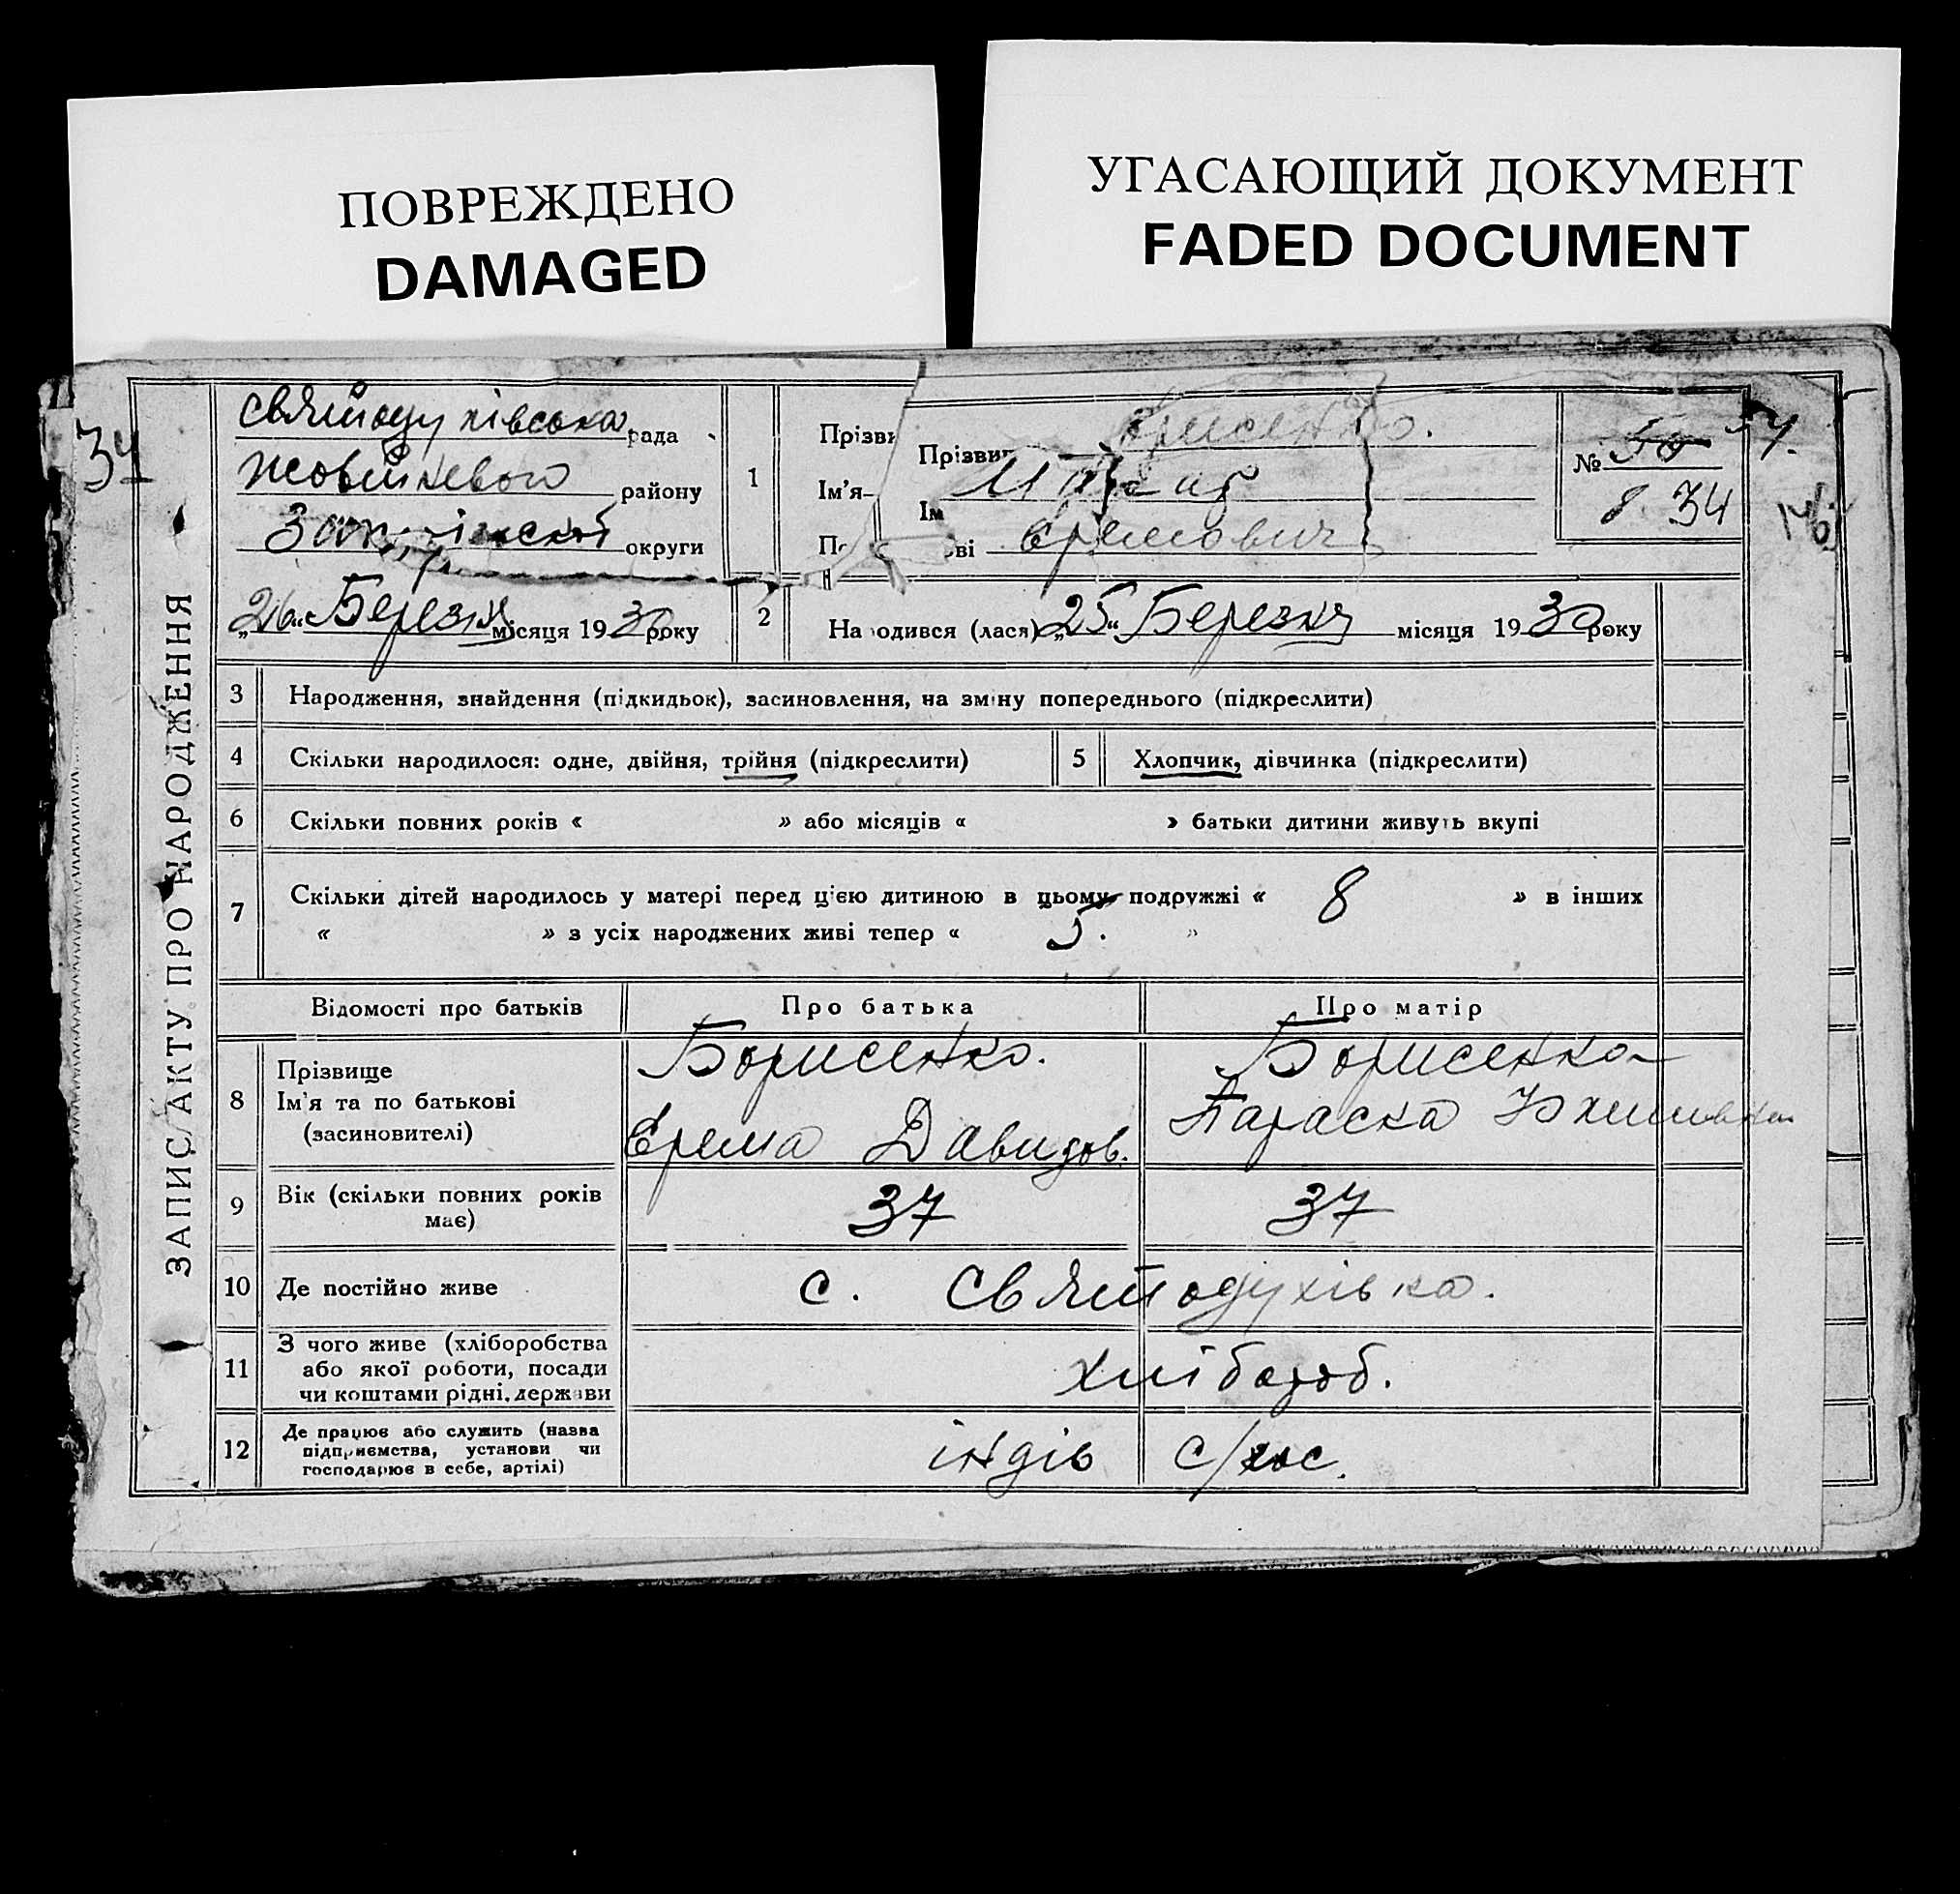 ПОВРЕЖДЕНО
DAMAGED
УГАСАЮЩИЙ ДОКУМЕНТ
FADED DOCUMENT
34
ЗАПИС АКТУ ПРО НАРОДЖЕННЯ
Святодухівська рада
Жовтневого району
округи
1
Прізви
Ім'я
По
Прізвищ орисенко.
Ім
ові Єремович
№ 50 34.
34
„26“ Березня місяця 1930 року
2
Народився (лася) „25“ Березня місяця 1930 року
3 Народження, знайдення (підкидьок), засиновлення, на зміну попереднього (підкреслити)
4 Скільки народилося: одне, двійня, трійня (підкреслити)
5 Хлопчик, дівчинка (підкреслити)
6 Скільки повних років « » або місяців « » батьки дитини живуть вкупі
7 Скільки дітей народилось у матері перед цією дитиною в цьому подружжі « 8 » в інших
« » з усіх народжених живі тепер « 5. »
Відомості про батьків Про батька Про матір
8 Прізвище
Ім'я та по батькові
(засиновителі)
Борисенко.
Єрема Давидов.
Борисенко
Параска
9 Вік (скільки повних років
має)
37 37
10 Де постійно живе с. Святодухівка.
11 З чого живе (хліборобства
або якої роботи, посади
чи коштами рідні, держави
хлібороб.
12 Де працює або служить (назва
підприємства, установи чи
господарює в себе, артілі)
індів с/гос.